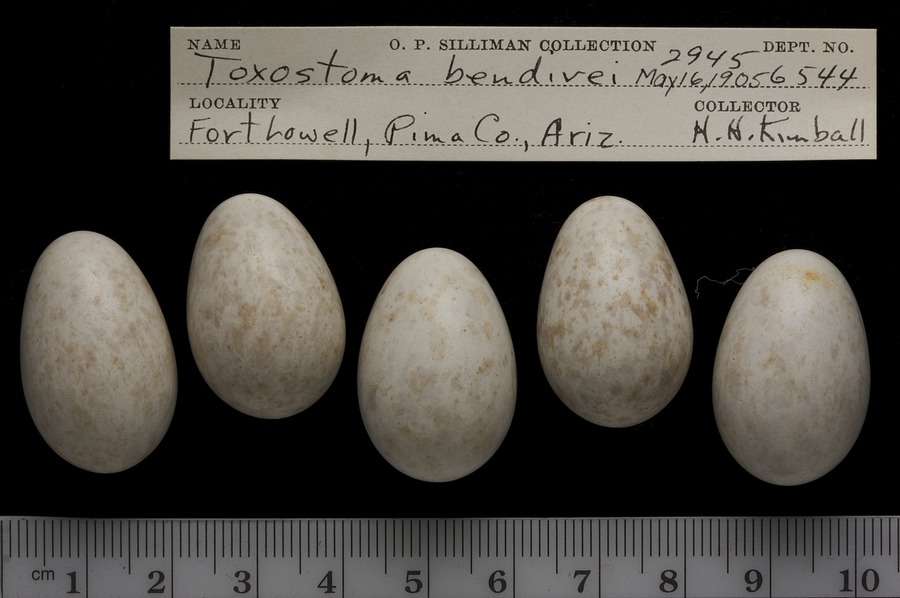 NAME O. P. SILLIMAN COLLECTION 2945 DEPT. NO.
Toxostoma bendirei May 16, 1905 6544
LOCALITY COLLECTOR
Fort Lowell, Pima Co., Ariz. H. H. Kimball
cm 1 2 3 4 5 6 7 8 9 10